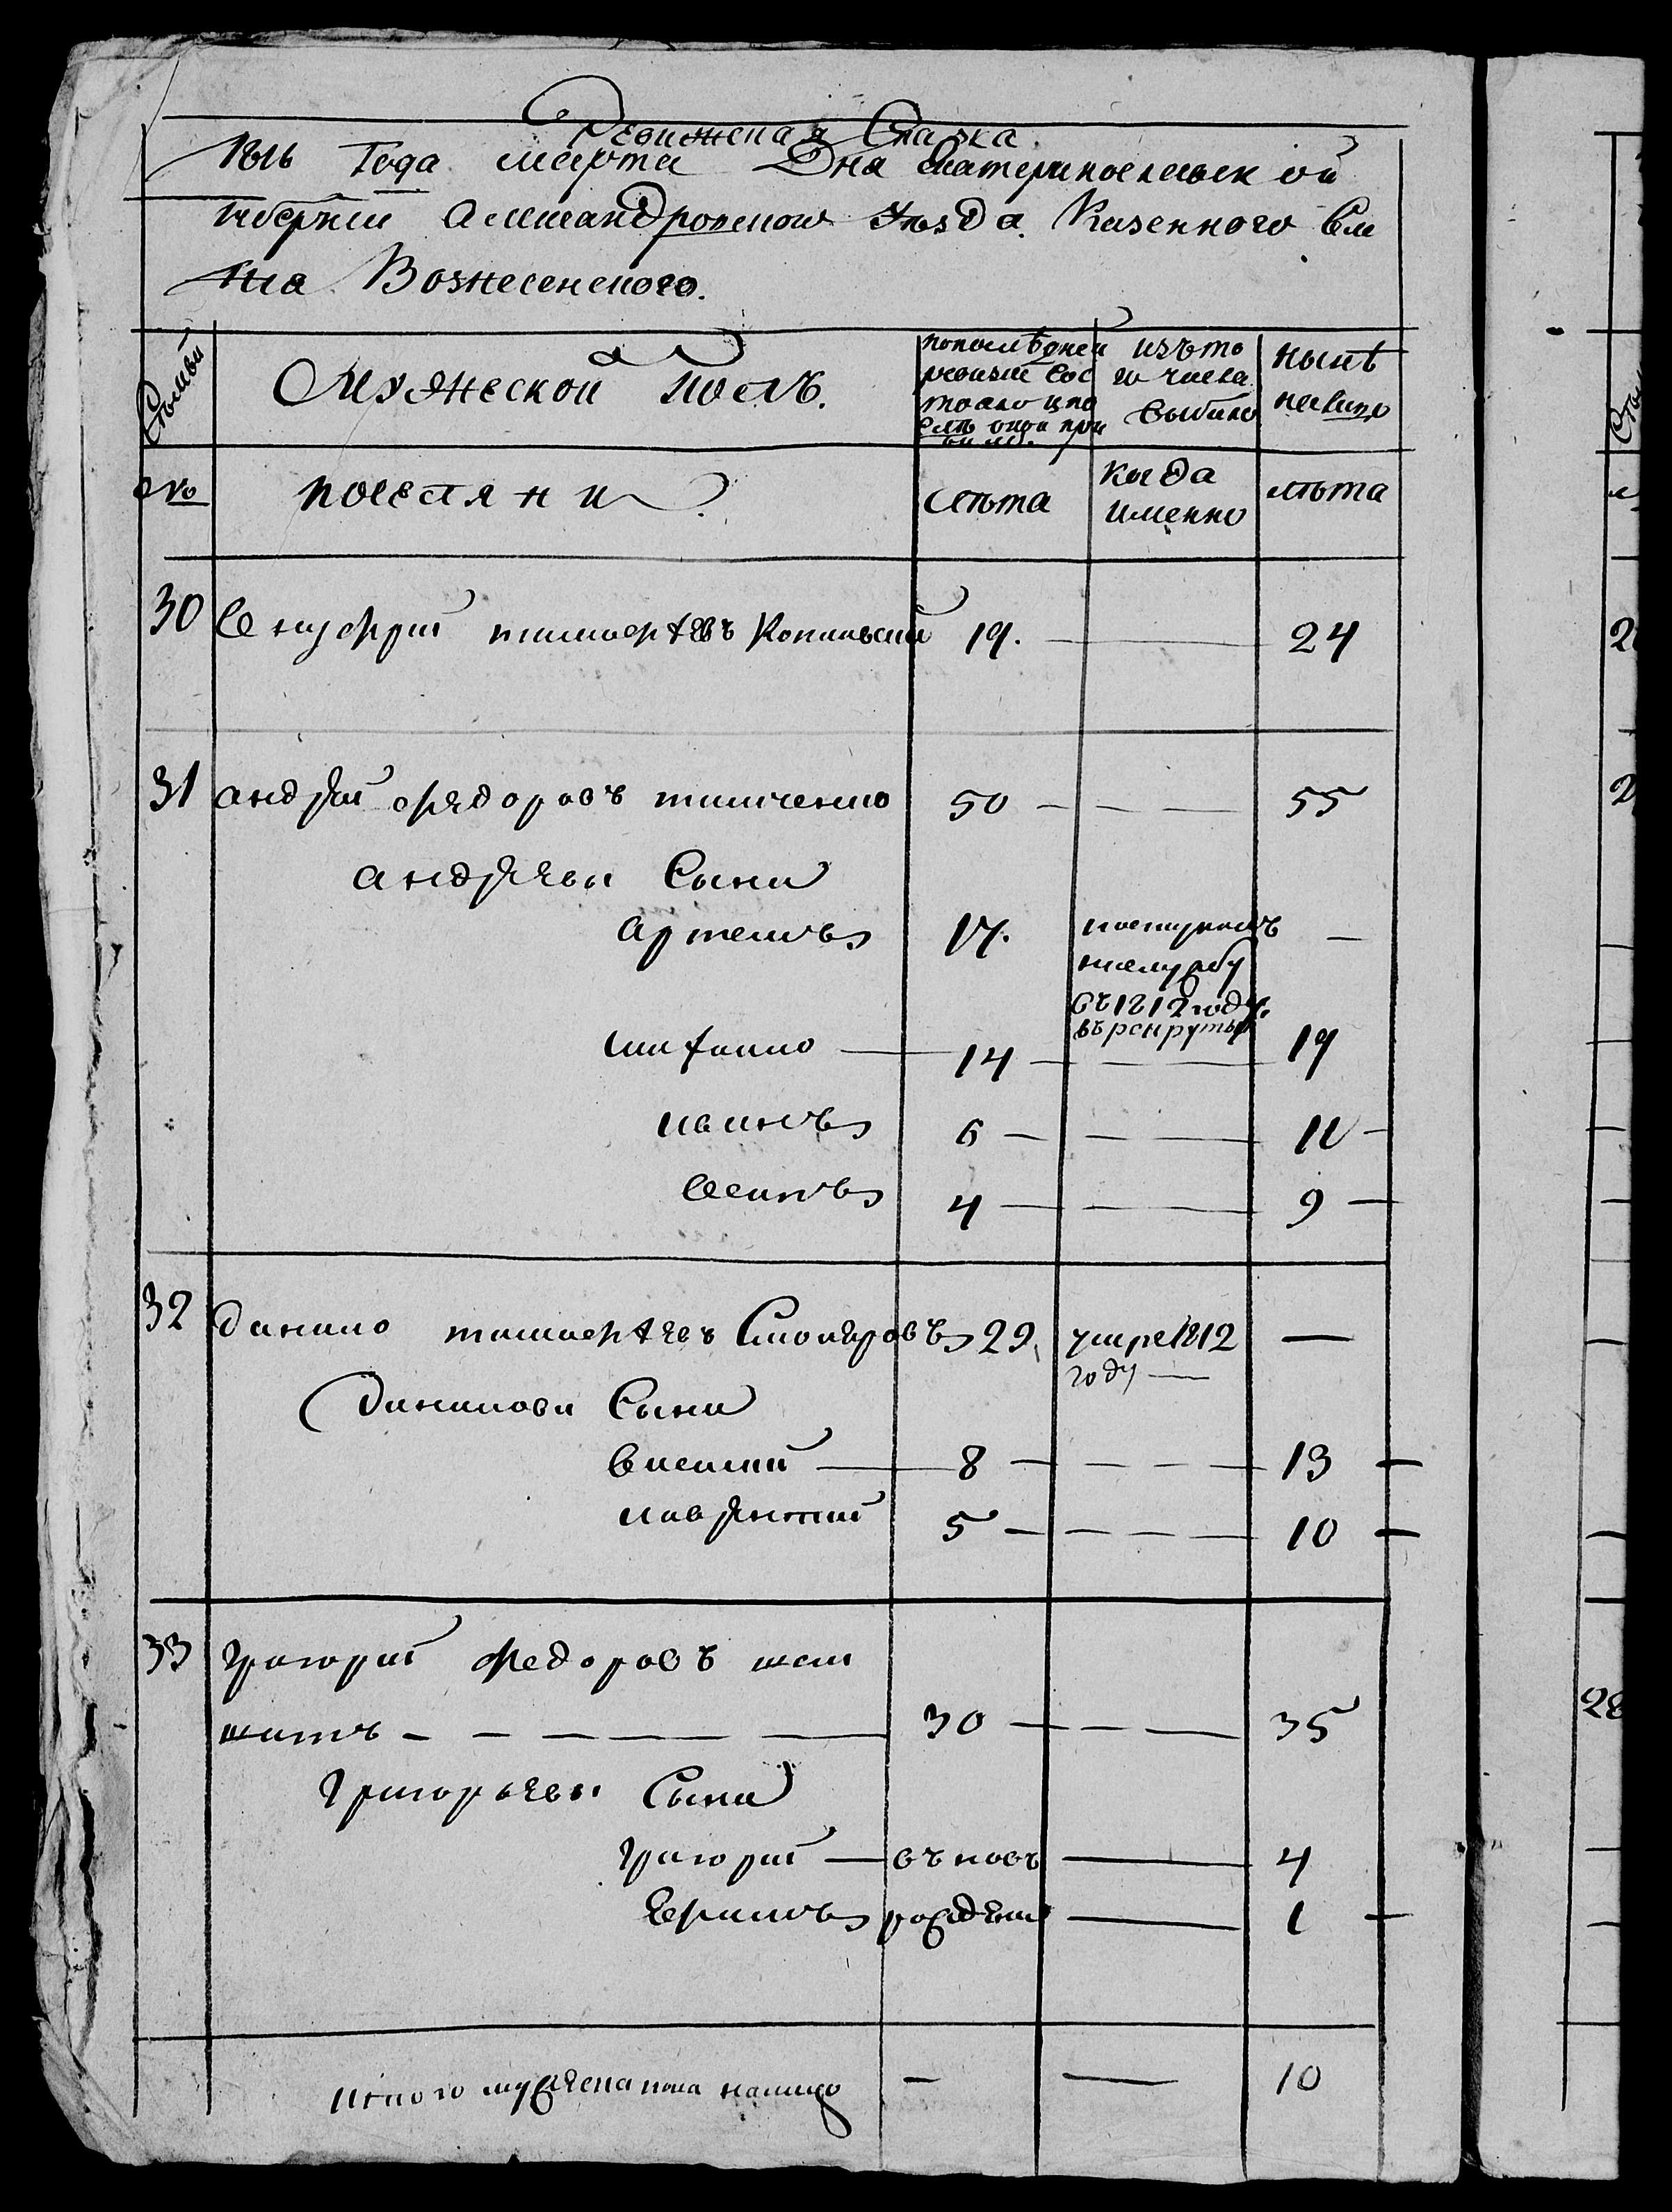 Ревижская Сказка
1816 Года марта Дня Екатеринославской
губернии Александровского уезда. Казенного Се
ла Вознесенского.
Семьи
Мужеской полъ.
по последней ревизии состояло и после оной прибыло.
изъ того числа выбыло
ныне налицо
№
поселяни
лѣта
когда именно
лѣта
30 19. 24
31 Андрей Федоровъ тимченко 50 — — — 55
Андреевы Сыни
Артемъ 17. поступилъ —
въ 1812 году.
въ рекруты
14 — — — 19
Иванъ 6 — — — 11 —
Семенъ 4 — — — 9 —
32 Данило Тимофеевъ 29. умре 1812 —
году —
Даниловы Сыни
Василий — 8 — — — 13 —
Лаврентий 5 — — — 10 —
33 Григорий Федоровъ
— — — — — 30 — — — 35
Григорьевы Сыни
Григорий — въ новъ — 4
рожденъ — 1 —
Итого мужеска пола налицо — — 10
2
2
28